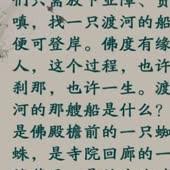 们只需放下业障、贪
嗔，找一只渡河的船
便可登岸。佛度有缘
人，这个过程，也许
刹那，也许一生。渡
河的那艘船是什么？
是佛殿檐前的一只蜘
蛛，是寺院回廊的一